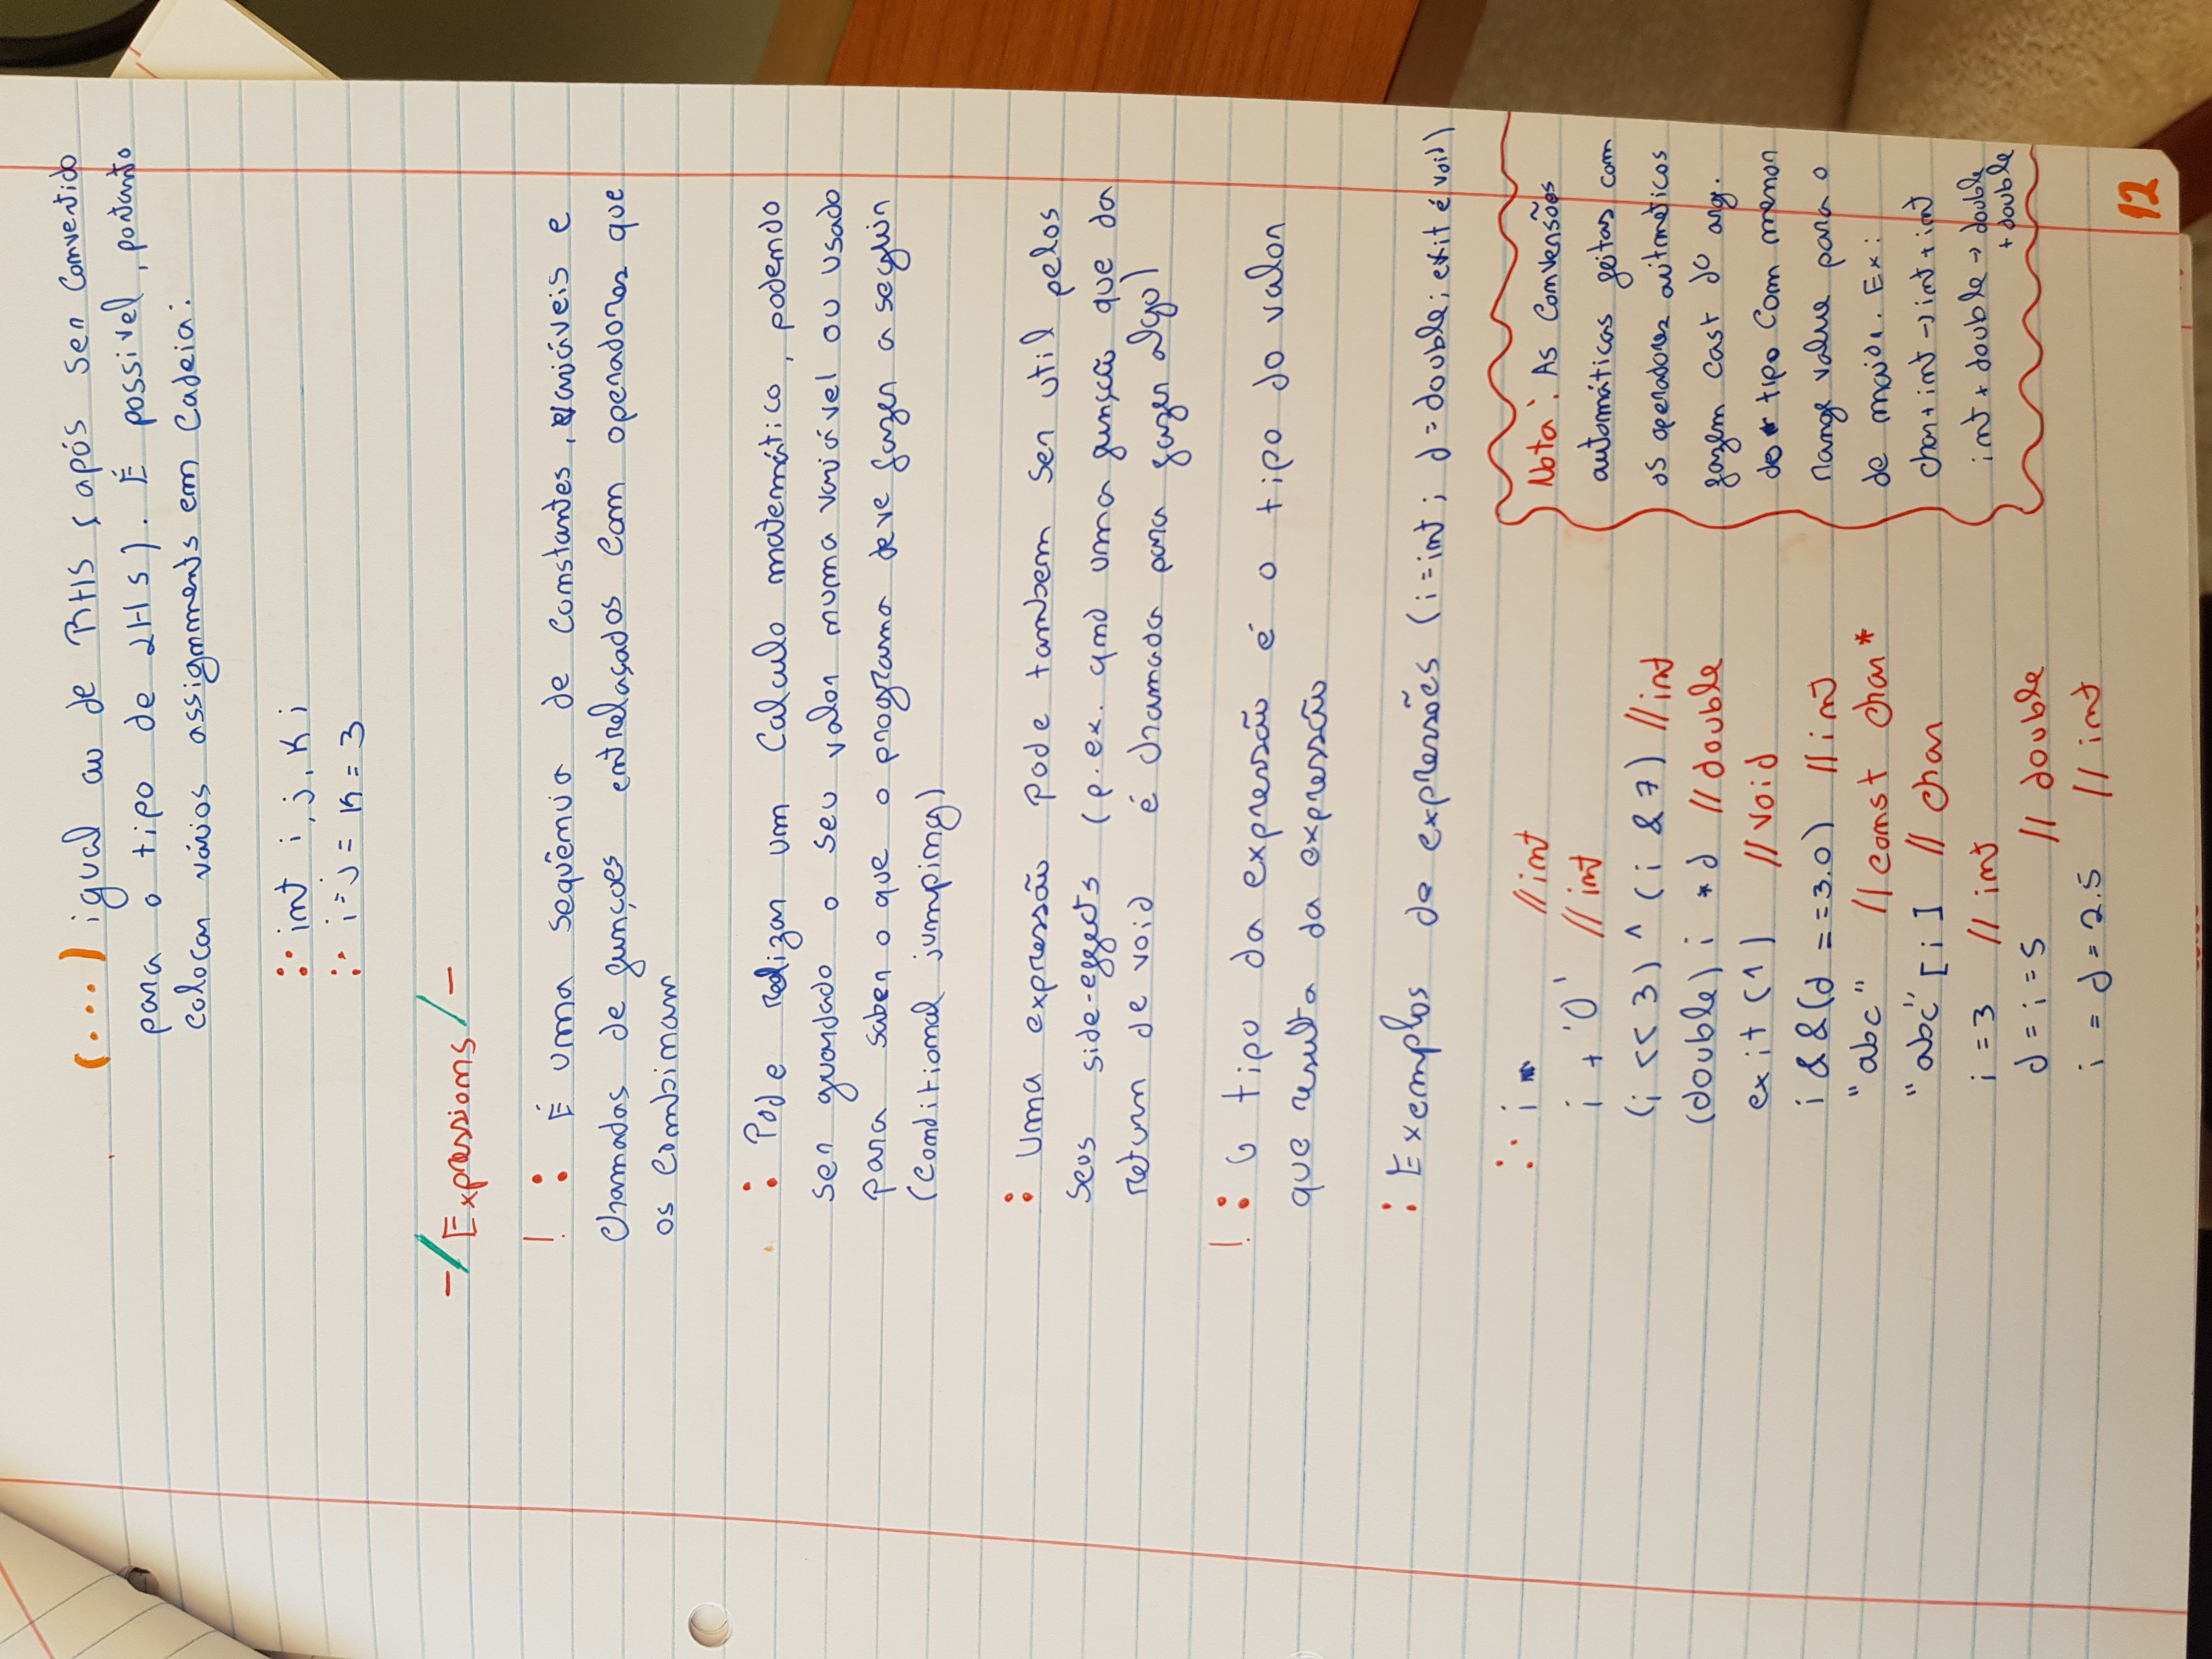 (...) igual ao de RHS (após ser convertido
para o tipo de LHS). É possivel, portanto
colocar vários assignments em cadeia:
:· int i, j, k;
:· i = j = k = 3
-/Expressions/-
! : É uma sequência de constantes, variáveis e
chamadas de funções entrelaçados com operadores que
os combinam
: Pode realizar um calculo matemático, podendo
ser guardado o seu valor numa variável ou usado
para saber o que o programa deve fazer a seguir
(conditional jumping)
: Uma expressão pode tambem ser util pelos
seus side-effects (p. ex. qnd uma função que da
return de void é chamada para fazer algo)
! : O tipo da expressão é o tipo do valor
que resulta da expressão
: Exemplos de expressões (i = int; d = double; exit é void)
:· i //int
i + '0' //int
(i << 3) ^ (i & 7) //int
(double) i * d //double
exit (1) //void
i && (d == 3.0) //int
"abc" //const char*
"abc" [i] //char
i = 3 //int
d = i = 5 //double
i = d = 2.5 //int
Nota: As conversões
automáticas feitas com
os operadores aritmeticos
fazem cast do arg.
do tipo com menor
range value para o
de maior. Ex:
char + int -> int + int
int + double -> double
+ double
12